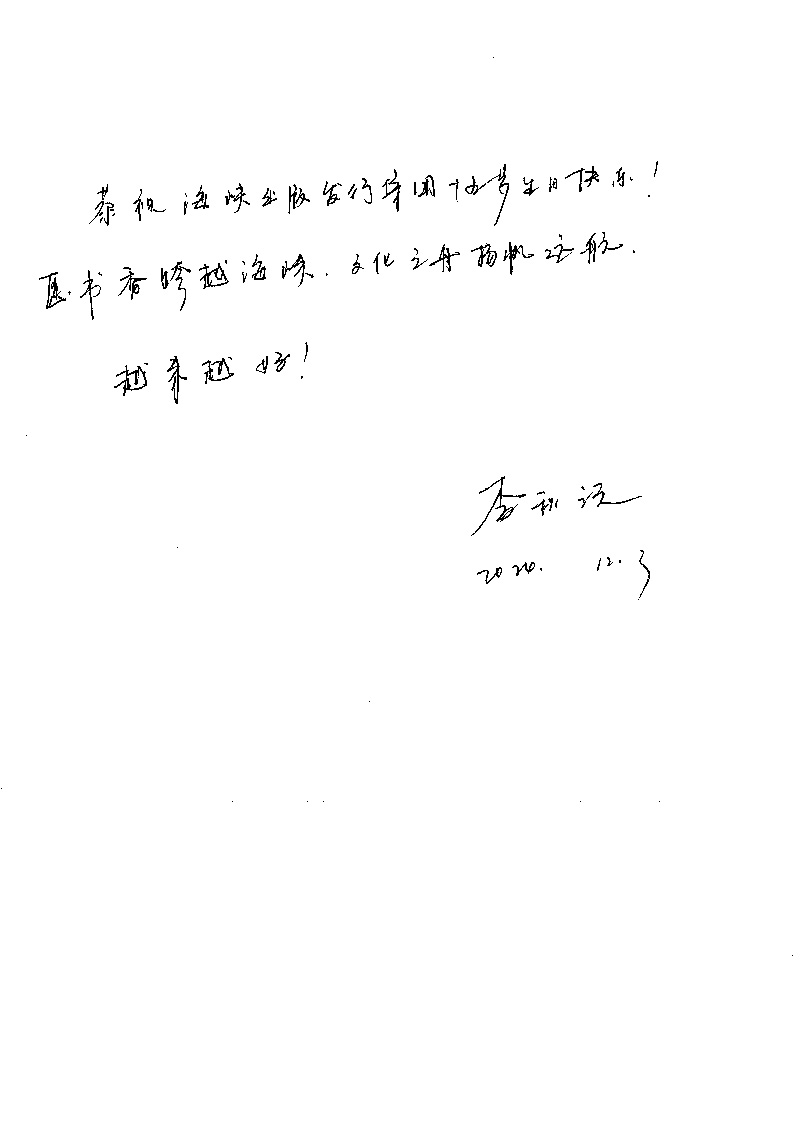 恭祝海峡出版发行集团十五岁生日快乐!
愿书香跨越海峡、文化之舟扬帆远航、
越来越好!
李秋沅
2024. 12.3